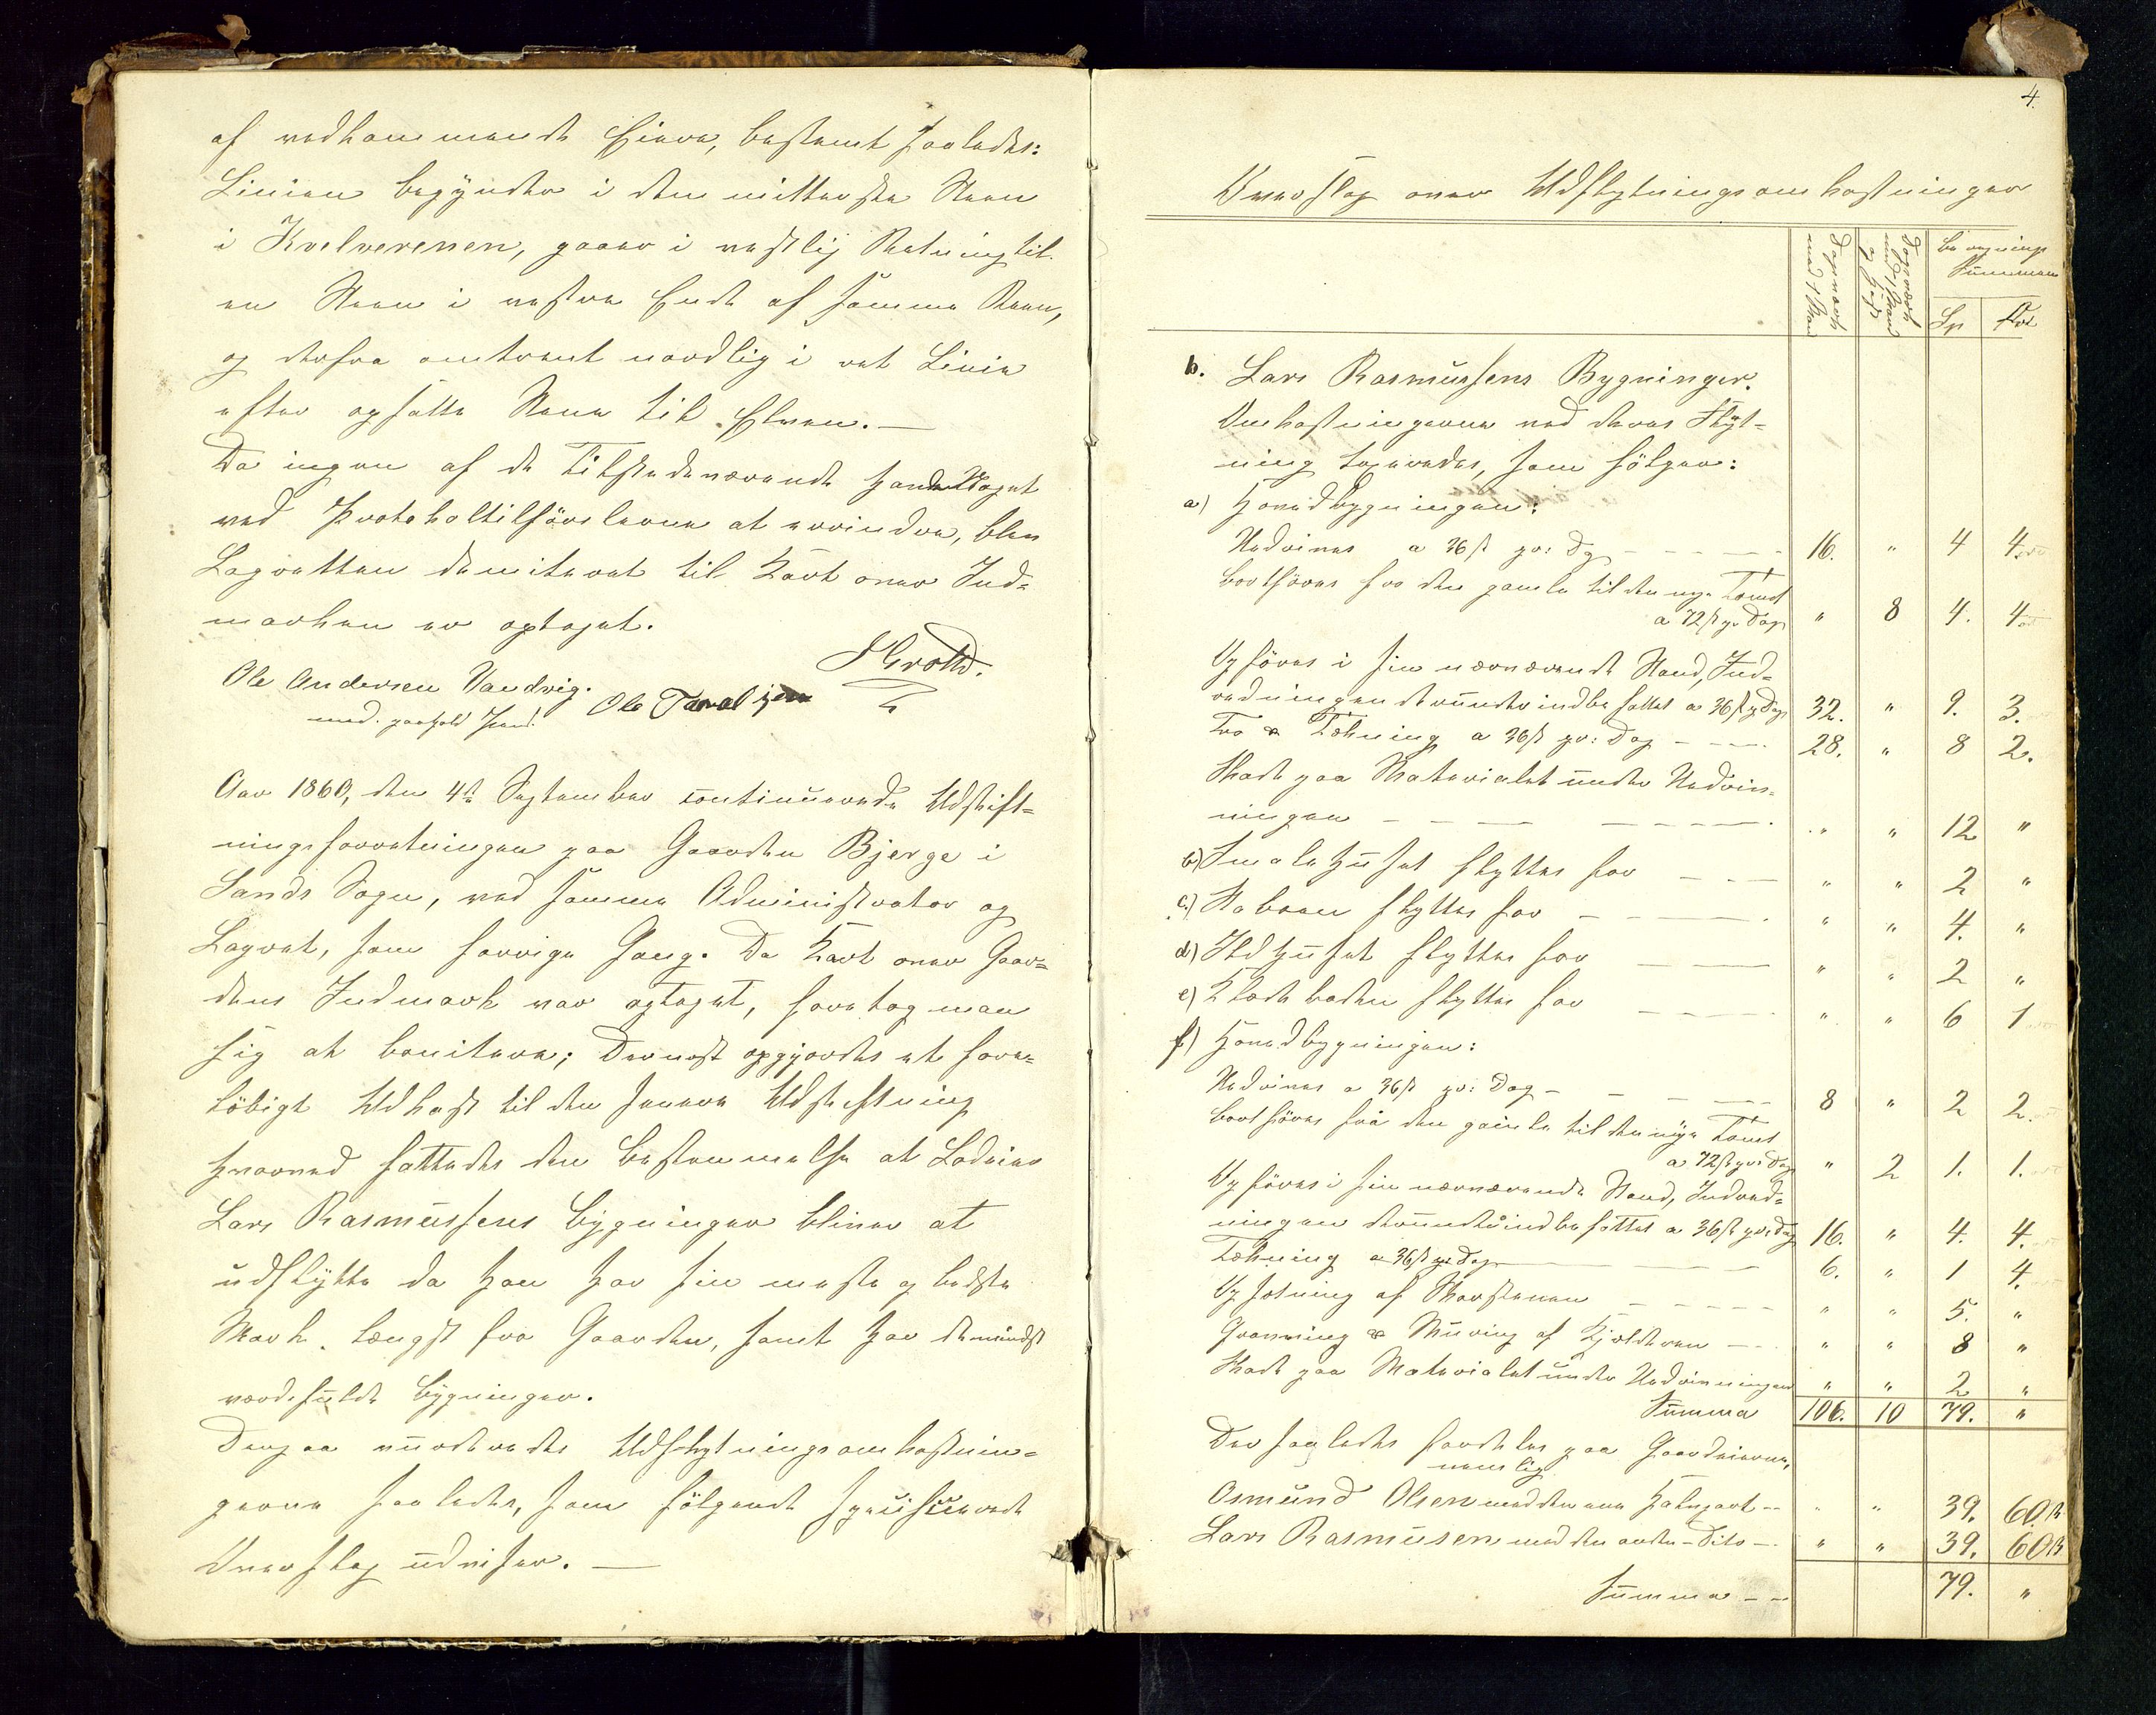 af vedkommende Eiere, bestemt saaledes:
Linien begynder i den mitterste Steen
i Kvelverenen, gaaer i vestlig Retning til
en Steen i vestre Ende af samme Reen,
og derfra omtrent nordlig i ret Linie
efter opsatte Stene til Elven. —
Da ingen af de Tilstedeværende havde Noget
ved Protokoltilförslerne at erindre, blev
Lagretten demiteret til Kart over Ind-
marken er optaget.
Ole Andersen Sandvig. Ole Taraldsen
med paaholden Pen.
Aar 1860, den 4de September continuerede Udskift-
ningsforretningen paa Gaarden Bjerge i
Sands Sogn, ved samme Administrator og
Lagret, som forrige Gang. Da Kart over Gaar-
dens Indmark var optaget, foretog man
sig at bonitere; Dernæst opgjordes et fore-
löbigt Udkast til den senere Udskiftning
hvorved fattedes den Bestemmelse at Lodeier
Lars Rasmussens Bygninger bliver at
udflytte da han har sin meste og bedste
Mark længst fra Gaarden, samt har de mindst
værdifulde Bygninger.
Derpaa vurderedes Udflytningsomkostnin-
gerne saaledes, som fölgende specificerede
Overslag udviser. —
4.
Overslag over Udflytningsomkostninger
Dagsværk med 1 Mand
Dagsværk med 1 Mand og Hest
Beregnings Summen
Sp
Ort
b. Lars Rasmussens Bygninger.
Omkostningerne ved deres Flyt-
ning taxeredes, som fölger:
a) Hovedbygningen:
Nedrives a 36 s pr: Dg - - - 16. " 4 4.
Bortföres fra den gamle til den nye Tomt
a 72 s pr Dag " 8 4. 4
Opföres i sin nærværende Stand, Ind-
redningen derunder indbefattet a 36 s pr Dag 32. " 9. 3.
Tro & Tækning a 36 s pr: Dag - - - 28. " 8 2.
Skade paa Materialet under Nedriv-
ningen - - - " " 12 "
b) Smalehuset flyttes for - - - " " 2 "
c.) Staburen flyttes for - - - " " 4. "
d) Ildhuset flyttes for - - - " " 2 "
e) Kladeboden flyttes for - - - " " 6 1
f) Hovedbygningen:
Nedrives a 36 s pr: Dag - - - 8 " 2 2.
Bortföres fra den gamle til den nye Tomt
a 72 s pr: Dag " 2 1. 1.
Opföres i sin nærværende Stand, Indred-
ningen derunder indbefattet a 36 s pr: Dag 16. " 4. 4.
Tækning a 36 s pr Dag - - - 6. " 1 4.
Opsætning af Skorstenen - - - " " 5. "
Gravning & Muring af Kjelderen - - " " 8 "
Skade paa Materialet under Nedrivningen " " 2 "
Summa 106. 10 79. "
Der saaledes fordeles paa Gaardeierne,
nemlig
Osmund Olsen med den ene Halvpart - " " 39. 60 s
Lars Rasmusen med den anden Dito - " " 39. 60 s
Summa - - 79. "